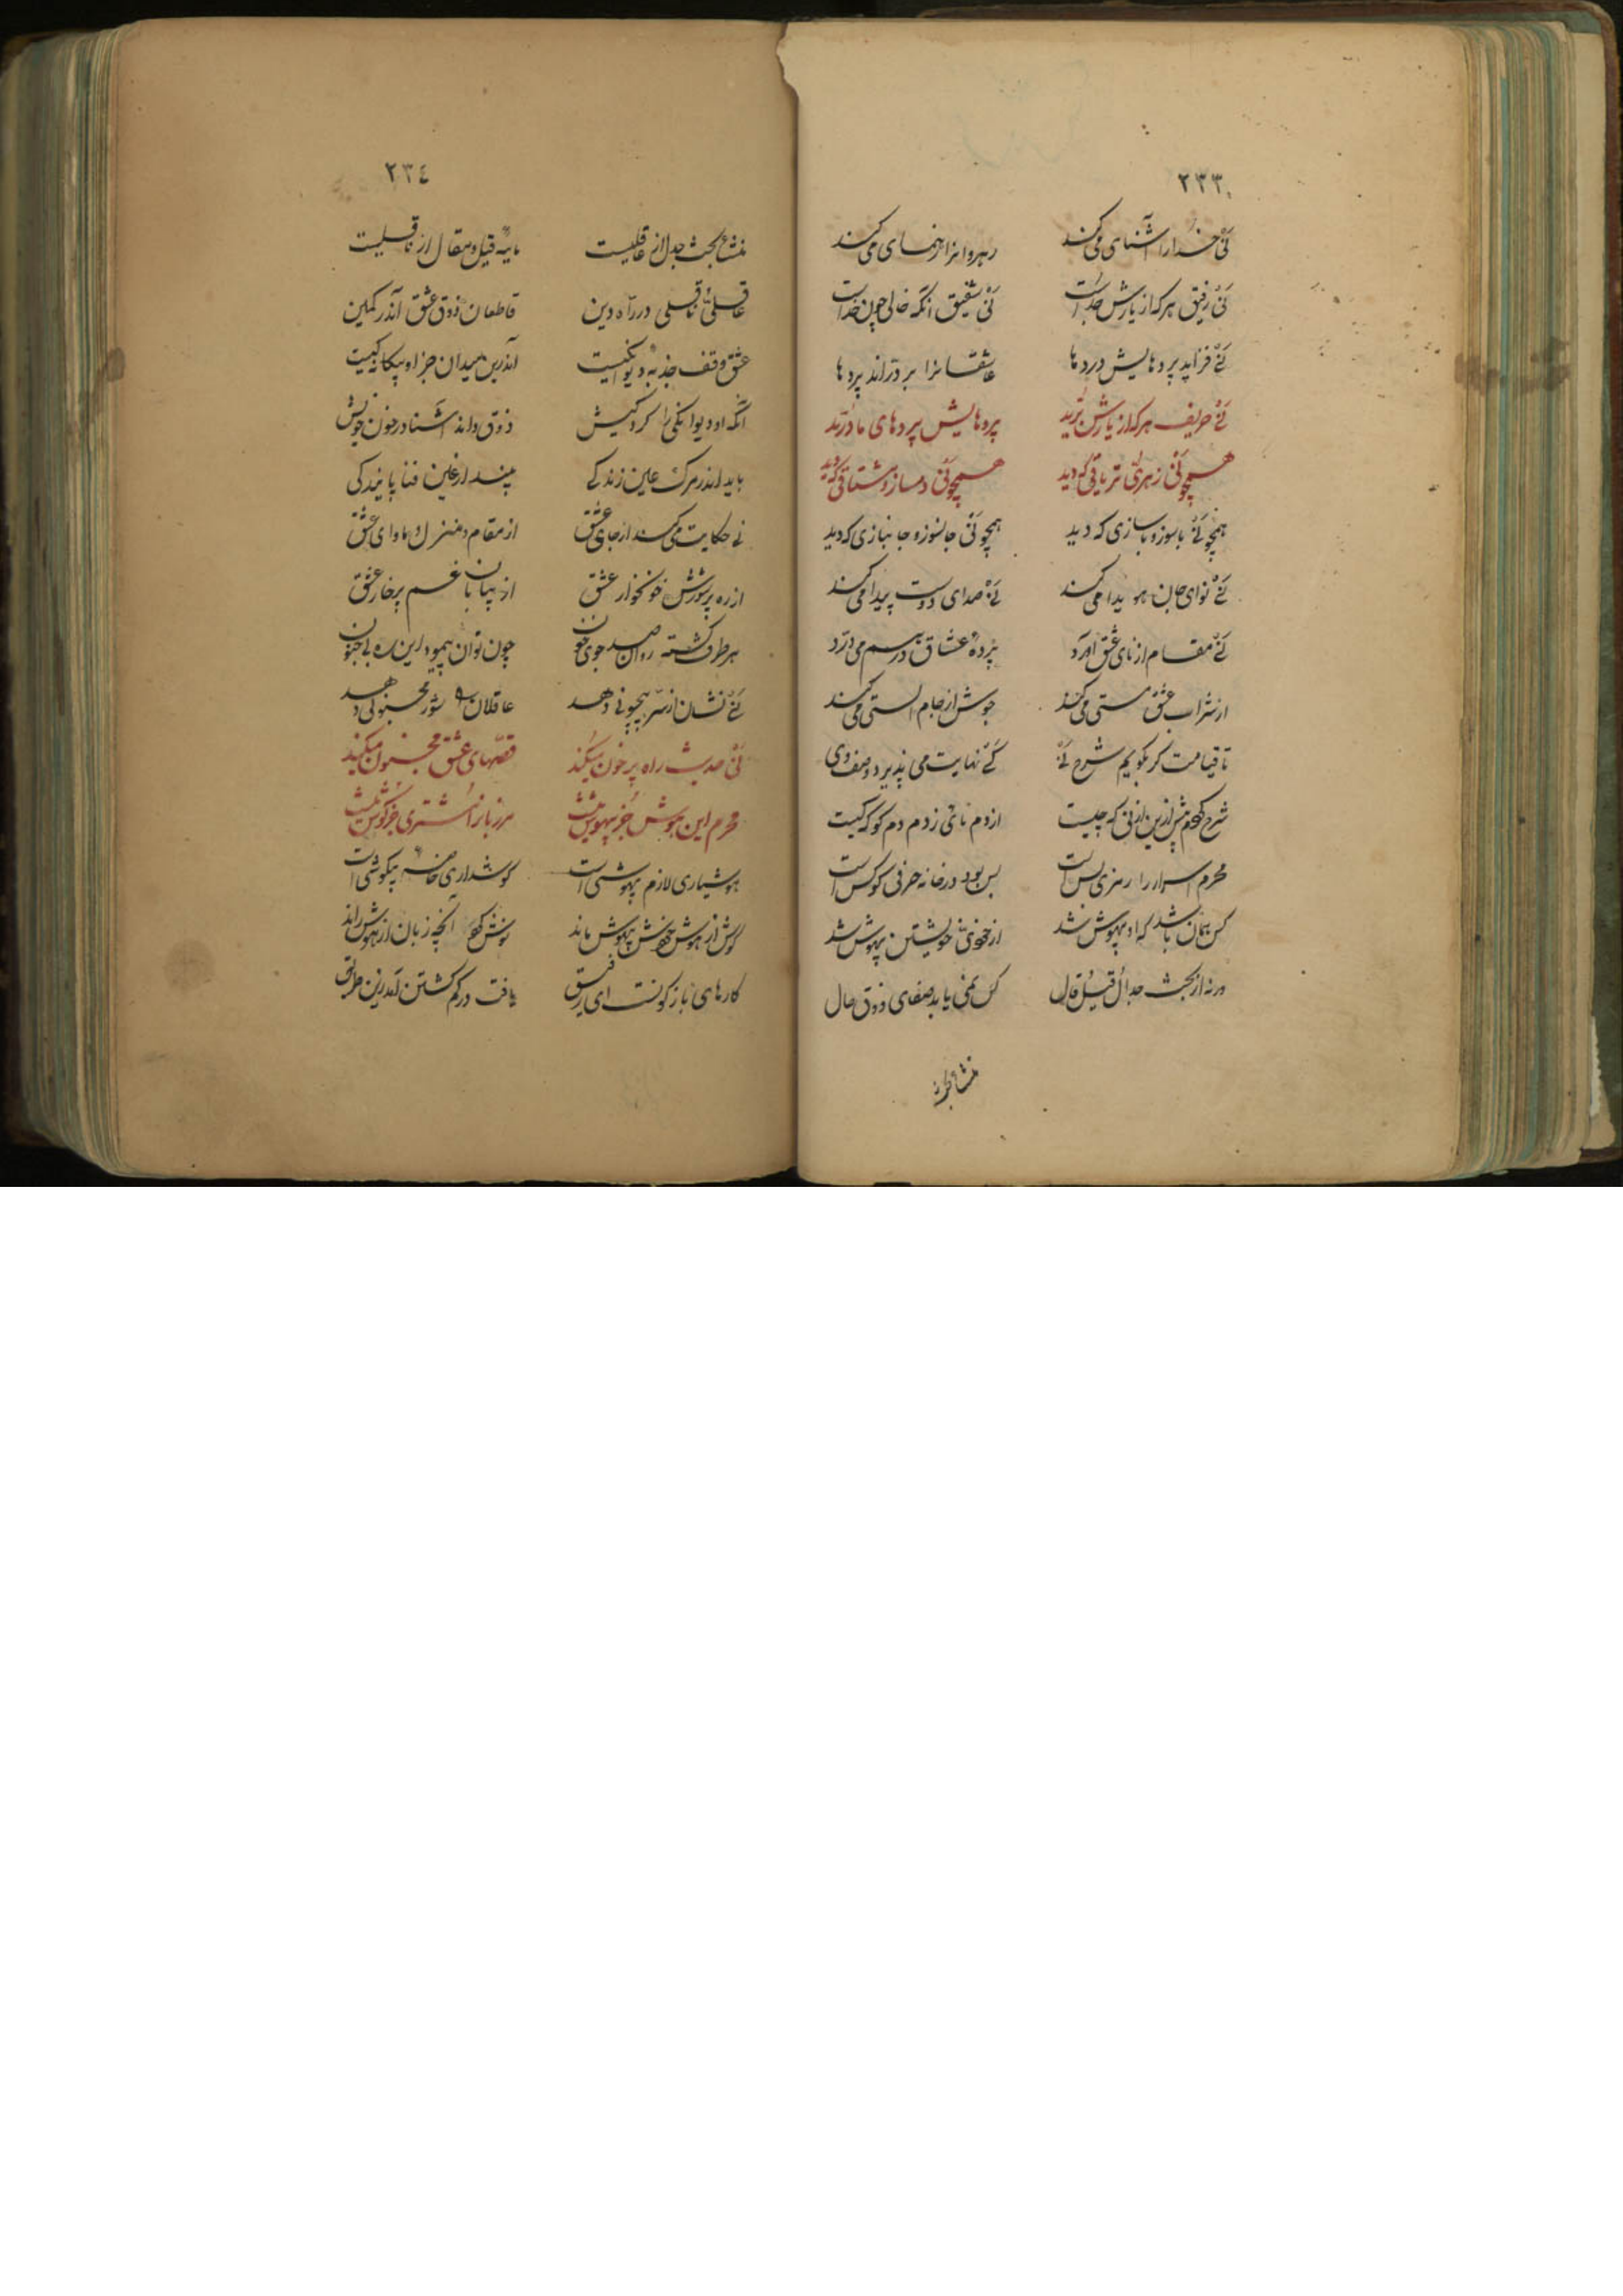 ٢٣٣
نی خدا را آشنای می کند رهروانرا رهنمای می کند
نی رفیق هرکه از یارش جداست نی شفیق آنکه خالی چون خداست
نی فزاید پردهایش دردها عاشقانرا بر دراند پردها
نی حریف هرکه از یارش برید پردهایش پردهای ما درید
همچو نی زهری تریاقی که دید همچو نی دمساز و مشتاقی که دید
همچو نی باسوز و باسازی که دید همچو نی جانسوز و جانبازی که دید
نی نوای جان هویدا می کند نی صدای دوست پیدا می کند
نی مقام از نای عشق آورد پرده عشاق درسم می درد
از شراب عشق مستی می کند جوش از جام الستی می کند
تا قیامت کر بگویم شرح نی کی نهایت می پذیرد وصف وی
شرح کردم پیش ازین از نی که چیست از دم نائی زدم دم کو که کیست
محرم اسرار را رمزی بس است بس بود در خانه حرفی کر کس است
کس باشد که او بیهوش شد از خودی خویشتن بیهوش شد
ورنه از بحث جدال قیل قال کس نمی یابد صفای ذوق حال
منشاء
٢٣٤
منشاء بحث جدل از عاقلیست مایه قیل و مقال از ناقلیست
عاقلی ناقلی در راه دین قاطعان ذوق عشق اندر کمین
عشق وقف جذبه دیوانکیست اندرین میدان جز او بیکانه کیست
آنکه او دیوانکی را کرد کیش ذوق داند آشنا در خون خویش
باید اندر مرک عین زندکی بیند از عین فنا پایندکی
نی حکایت می کند از جای عشق از مقام و منزل و ماوای عشق
از ره پرشورش خونخوار عشق از بیابان غم پرخار عشق
هر طرف کشته روان صد جوی خون چون توان پیمود این ره بی جنون
نی نشان از سر بیچونی دهد عاقلان را شور مجنونی دهد
نی حدیث راه پر خون میکند قصهای عشق مجنون میکند
محرم این هوش جز بیهوش نیست مر زبانرا مشتری جز کوش نیست
هوشیاری لازم بیهوشی است کوشداری خاصه بیکوشی است
کوش از هوش خودش بیکوش ماند نوش کرد آنچه زبان از هوش راند
کارهای بازکونست ای رفیق یافت در کم کشتن آمد زین طریق